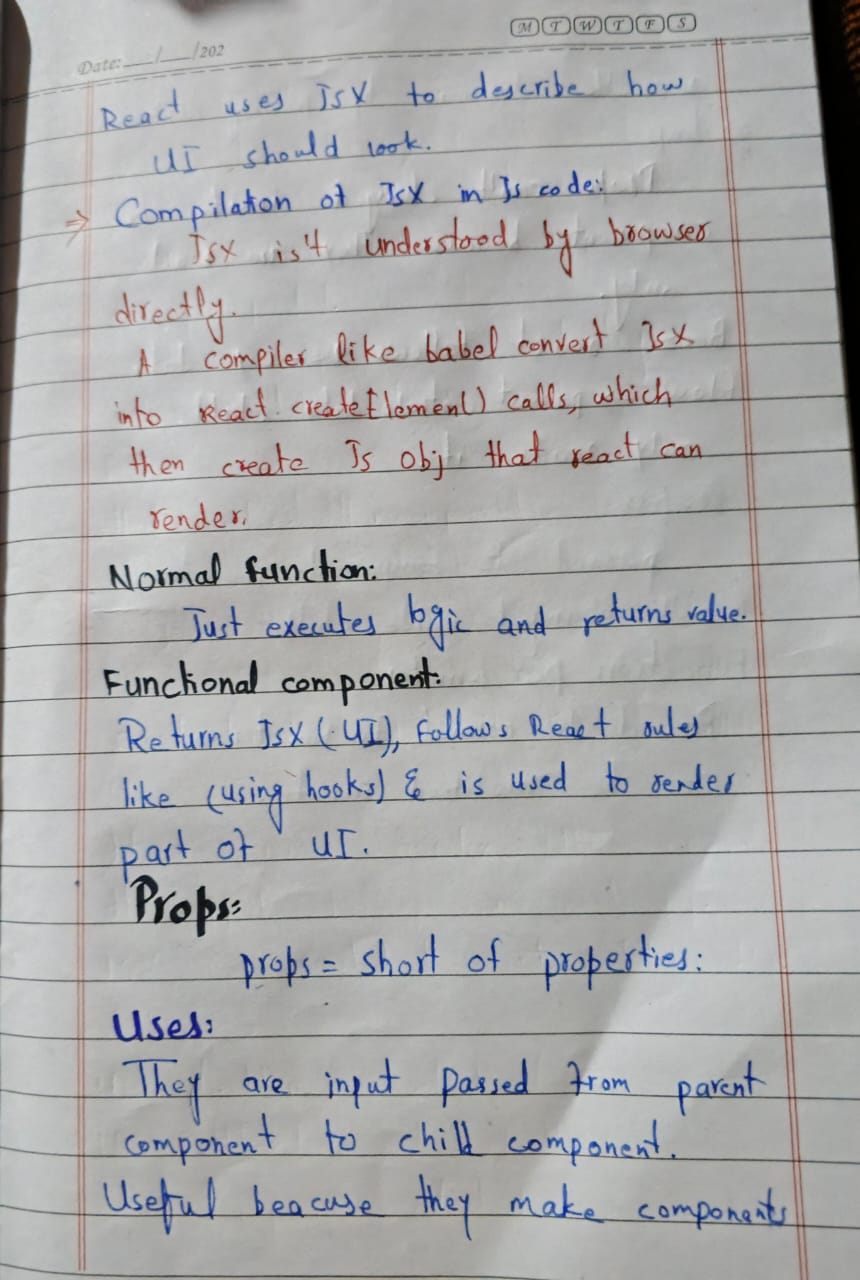 M T W T F S
Date:__/__/202
React uses JSX to describe how
UI should look.
⇒ Compilation of JSX in Js code:
JSX isn't understood by browser
directly.
A compiler like babel convert JSX
into React.createElement() calls, which
then create Js obj that react can
render.
Normal function:
Just executes logic and returns value.
Functional component:
Returns JSX (UI), follows React rules
like (using hooks) & is used to render
part of UI.
Props:
props = short of properties:
Uses:
They are input passed from parent
component to child component.
Useful beacuse they make components